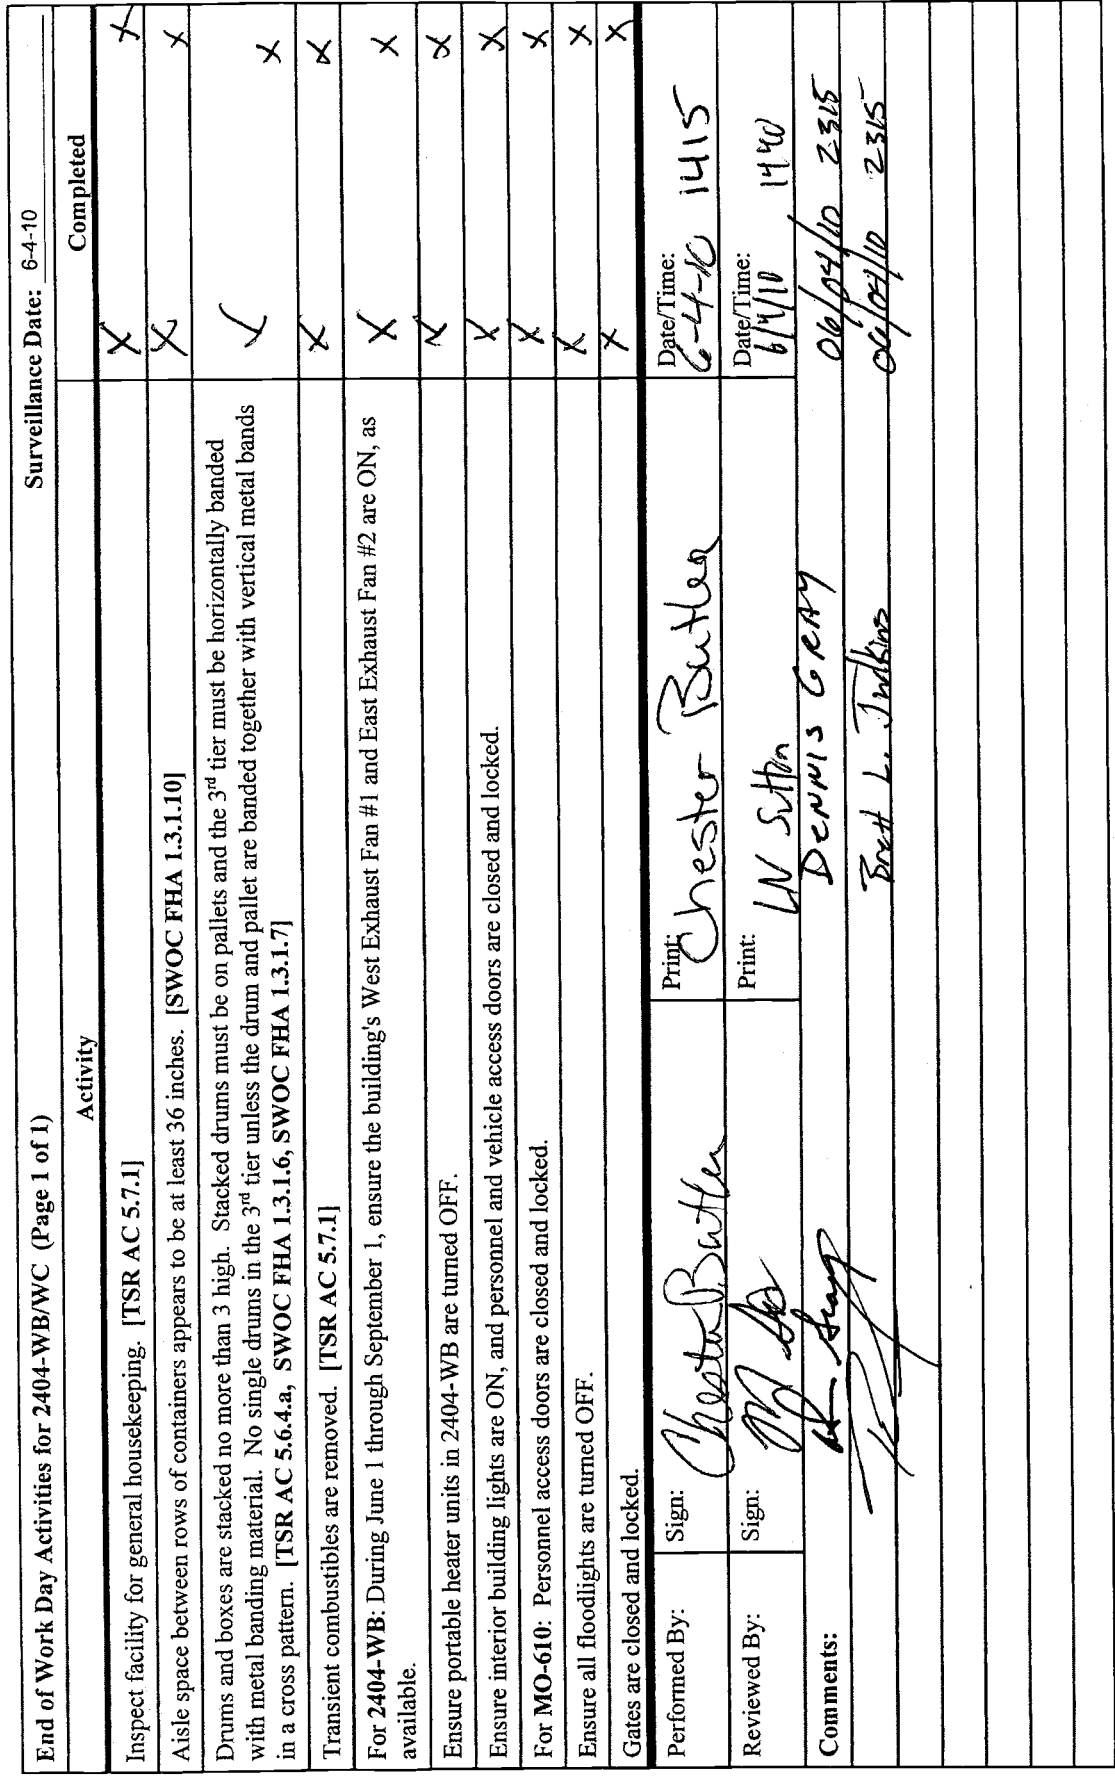 End of Work Day Activities for 2404-WB/WC (Page 1 of 1) Surveillance Date: 6-4-10
Activity Completed
Inspect facility for general housekeeping. [TSR AC 5.7.1] X X
Aisle space between rows of containers appears to be at least 36 inches. [SWOC FHA 1.3.1.10] X X
Drums and boxes are stacked no more than 3 high. Stacked drums must be on pallets and the 3rd tier must be horizontally banded
with metal banding material. No single drums in the 3rd tier unless the drum and pallet are banded together with vertical metal bands
in a cross pattern. [TSR AC 5.6.4.a, SWOC FHA 1.3.1.6, SWOC FHA 1.3.1.7] X X
Transient combustibles are removed. [TSR AC 5.7.1] X X
For 2404-WB: During June 1 through September 1, ensure the building's West Exhaust Fan #1 and East Exhaust Fan #2 are ON, as
available. X X
Ensure portable heater units in 2404-WB are turned OFF. X X
Ensure interior building lights are ON, and personnel and vehicle access doors are closed and locked. X X
For MO-610: Personnel access doors are closed and locked. X X
Ensure all floodlights are turned OFF. X X
Gates are closed and locked. X X
Performed By: Sign: Chester Butler Print: Chester Butler Date/Time: 6-4-10 1415
Reviewed By: Sign: Print: LW Sutton Date/Time: 6/4/10 1440
Comments: DENNIS GRAY 06/04/10 2315
Brett L. Judkins 06/04/10 2315